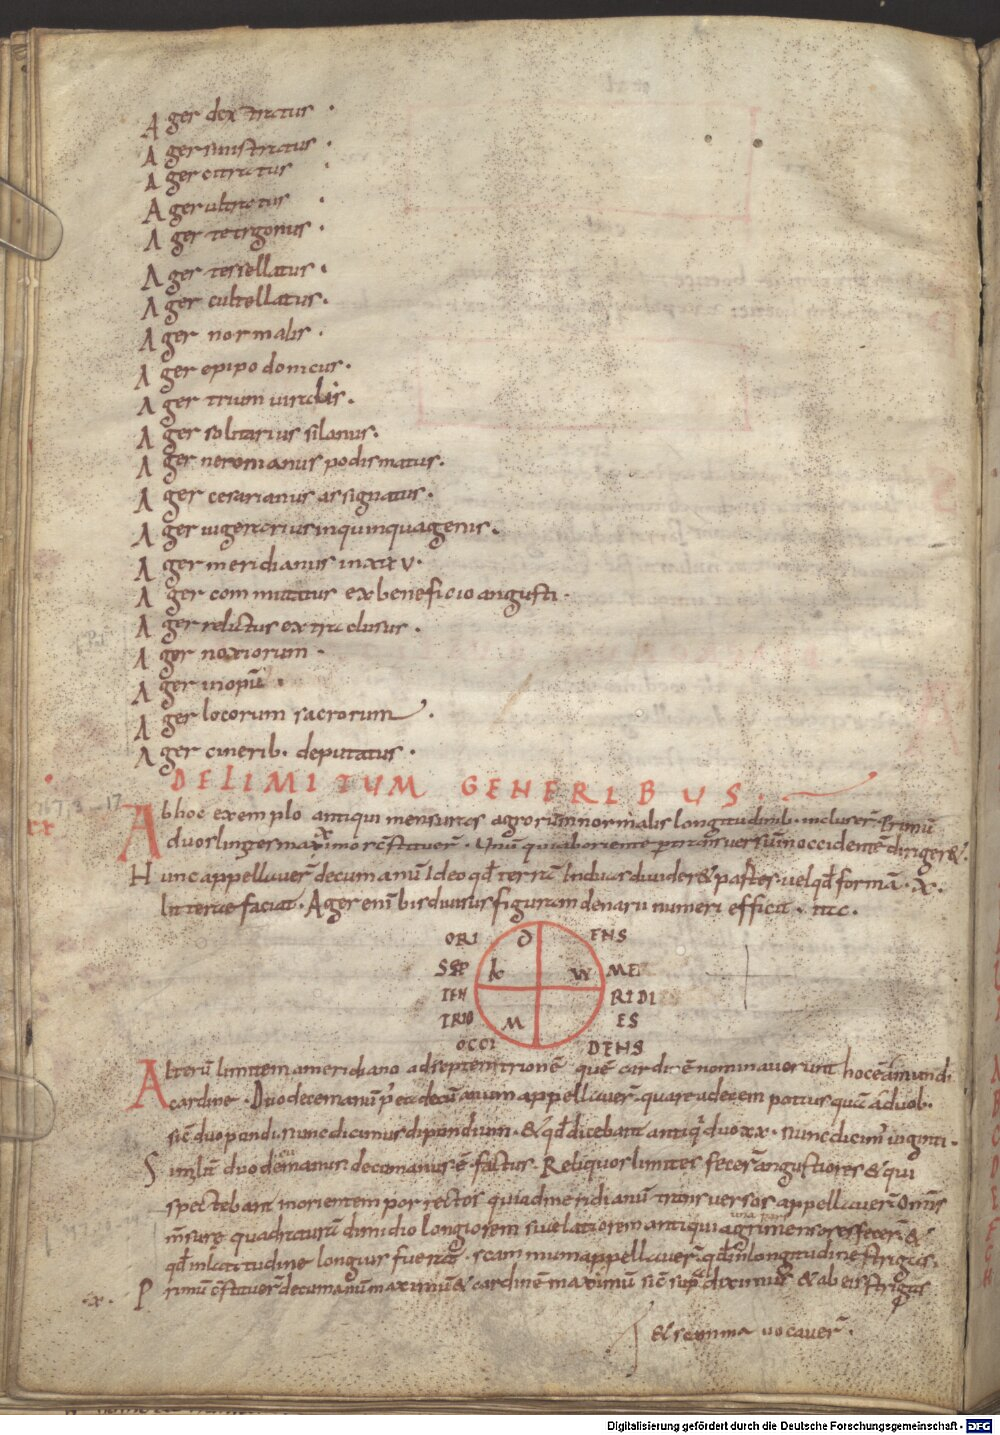 Ager dextratus .
Ager sinistratus .
Ager citratus .
Ager ultratus .
Ager tetrgonus .
Ager tessellatus .
Ager cultellatus .
Ager normalis .
Ager epipodonicus .
Ager triumuiralis .
Ager solitarius silanus .
Ager neromanus podismatus .
Ager cesarianus assignatus .
Ager uigentarius inquinquagenis .
Ager meridianus inxxv .
Ager commutatus exbeneficio augusti .
Ager relictus extraclusus .
Ager noxiorum .
Ager inopū .
Ager locorum sacrorum .
Ager cinerib. deputatus .
DE LIMITUM GENERIBUS .
Abhoc exemplo antiqui mensuras agrorum normalis longitudinib. incluser̄ Primū
duos limites maximos c̄stituer̄ . Unū qui aboriente
Hunc appellauer̄ decumanū Ideo qd̄ terrā Induas diuider& partes . uelqd̄ formā . X .
litterae faciat . Ager enī bis duabus figuram denarii numeri efficit .
ORI D ENS
SEP K M MERI
TEN RIDI
TRIO M ES
OCCI DENS
Alterū limitem ameridiano adseptentrionē quē cardinē nominauerunt
cardine . Duodecemanū
sic̄ duopondi . nunc dicimus dipundium . & qd̄ dicebant antiqui duo xx . nunc dicim' uiginti .
Similit̄ duodemanus decumanus ē factus . Reliquos limites fecer̄ angustiores & qui
spectebant inorientem porrectos quiadmeridianū transuersos appellauer̄ Omīs
quadraturū dimidio longiorem siue latiorem antiqui agrimensores fecer̄ &
qd̄ inlatitudine longius fuerat . scamnum appellauer̄ qd̄ inlongitudine strigas .
Primū c̄stituer̄ decumanū maximū & cardinē maximū sic̄ sup̄ diximus & ab eis strigas
& scamna uocauer̄ .
Digitalisierung gefördert durch die Deutsche Forschungsgemeinschaft - DFG